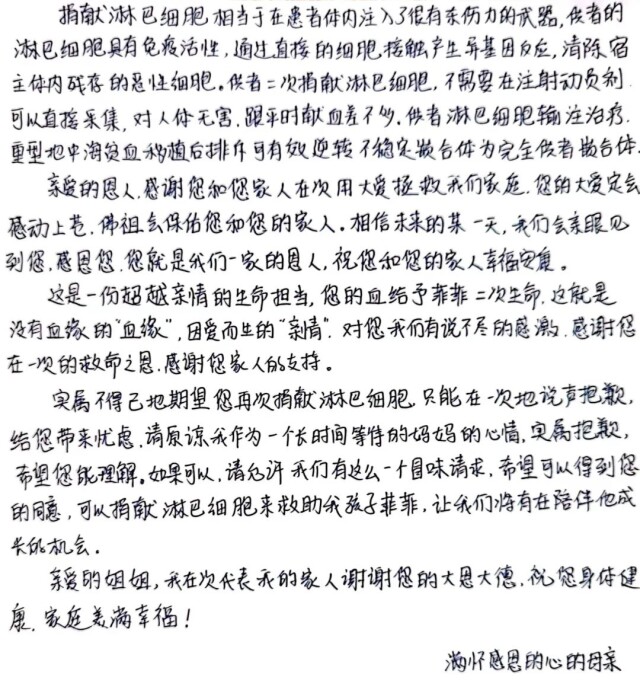 捐献淋巴细胞相当于在患者体内注入了很有杀伤力的武器,供者的
淋巴细胞具有免疫活性,通过直接的细胞接触产生异基因反应,清除宿
主体内残存的恶性细胞。供者二次捐献淋巴细胞,不需要在注射动员剂
可以直接采集,对人体无害,跟平时献血差不多,供者淋巴细胞输注治疗,
重型地中海贫血移植后排斥可有效逆转不稳定嵌合体为完全供者嵌合体.
亲爱的恩人,感谢您和您家人在次用大爱拯救我们家庭,您的大爱定会
感动上苍,佛祖会保佑您和您的家人。相信未来的某一天,我们会亲眼见
到您,感恩您,您就是我们一家的恩人,祝您和您的家人幸福安康。
这是一份超越亲情的生命担当,您的血给予菲菲二次生命,这就是
没有血缘的"血缘",因爱而生的"亲情",对您我们有说不尽的感激,感谢您
在一次的救命之恩,感谢您家人的支持。
实属不得已地期望您再次捐献淋巴细胞,只能在一次地说声抱歉,
给您带来忧虑,请原谅我作为一个长时间等待的妈妈的心情,实属抱歉,
希望您能理解。如果可以,请允许我们有这么一个冒昧请求,希望可以得到您
的同意,可以捐献淋巴细胞来救助我孩子菲菲,让我们将有在陪伴他成
长的机会。
亲爱的姐姐,我在次代表我的家人谢谢您的大恩大德,祝您身体健
康,家庭美满幸福!
满怀感恩的心的母亲